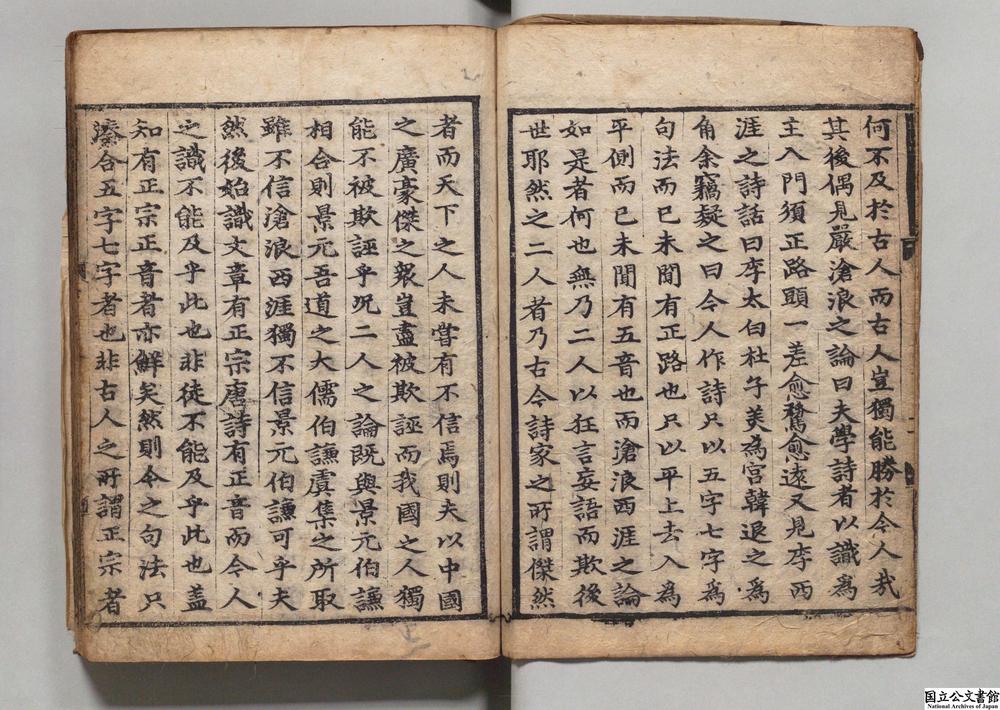 何不及於古人而古人豈獨能勝於今人哉
其後偶見嚴滄浪之論曰夫學詩者以識爲
主入門須正路頭一差愈騖愈遠又見李西
涯之詩話曰李太白杜子美為宮韓退之爲
角余竊疑之曰今人作詩只以五字七字爲
句法而已未聞有正路也只以平上去入爲
平側而已未聞有五音也而滄浪西涯之論
如是者何也無乃二人以狂言妄語而欺後
世耶然之二人者乃古今詩家之所謂傑然
者而天下之人未嘗有不信焉則夫以中國
之廣豪傑之衆豈盡被欺誣而我國之人獨
能不被欺誣乎況二人之論既與景元伯謙
相合則景元吾道之大儒伯謙虞集之所取
雖不信滄浪西涯獨不信景元伯謙可乎夫
然後始識文章有正宗唐詩有正音而今人
之識不能及乎此也非徒不能及乎此也盖
知有正宗正音者亦鮮矣然則今之句法只
湊合五字七字者也非古人之所謂正宗者
国立公文書館
National Archives of Japan